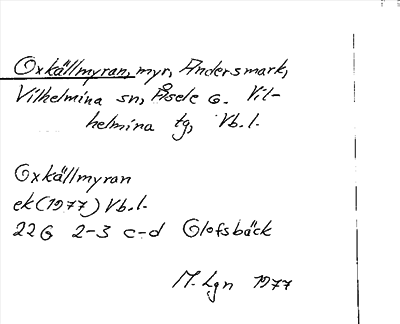 Oxkällmyran, myr, Andersmark,
Vilhelmina sn, Åsele o. Vil-
helmina tg, Vb.l.
Oxkällmyran
ek (1977) Vb.l.
22G 2-3 c-d Olofsbäck
M. Lgn 1977